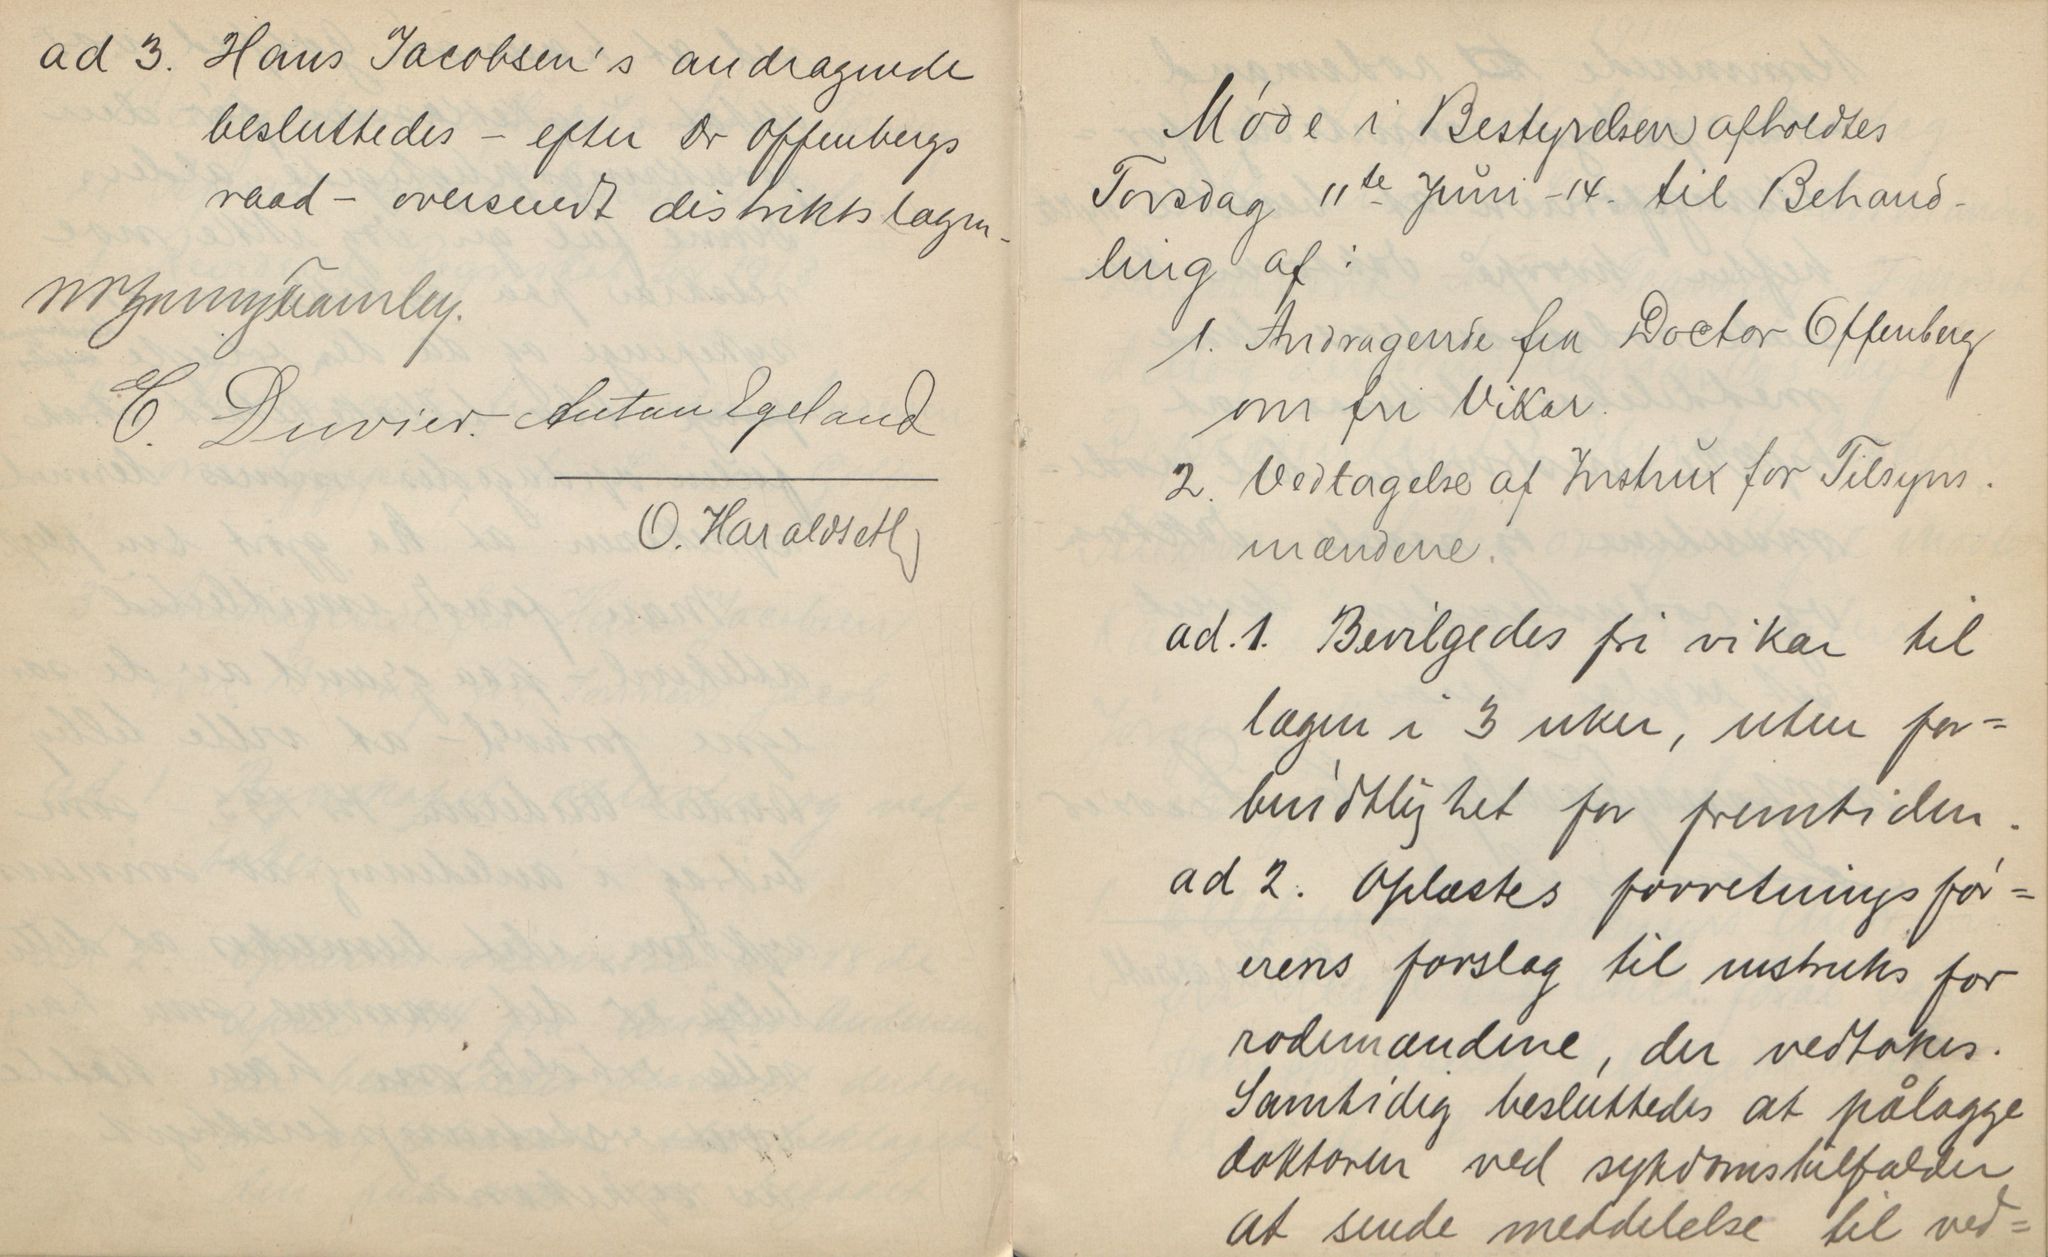 ad 3. Hans Jacobsen's andragende
besluttedes – efter Dr Offenbergs
raad – oversendt distriktslægen.
E. Duvier. Anton Egeland
O. Haraldseth
Møde i Bestyrelsen afholdtes
Torsdag 11te Juni -14. til Behand-
ling af:
1. Andragende fra Doctor Offenberg
om fri Vikar.
2. Vedtagelse af Instrux for Tilsyns-
mændene.
ad. 1. Bevilgedes fri vikar til
lægen i 3 uker, uten for=
bindtlighet for fremtiden.
ad 2. Oplæstes forretningsfør=
erens forslag til instruks for
rodemændene, der vedtokes.
Samtidig besluttedes at pålægge
doktoren ved sykdomstilfælder
at sende meddelelse til ved=